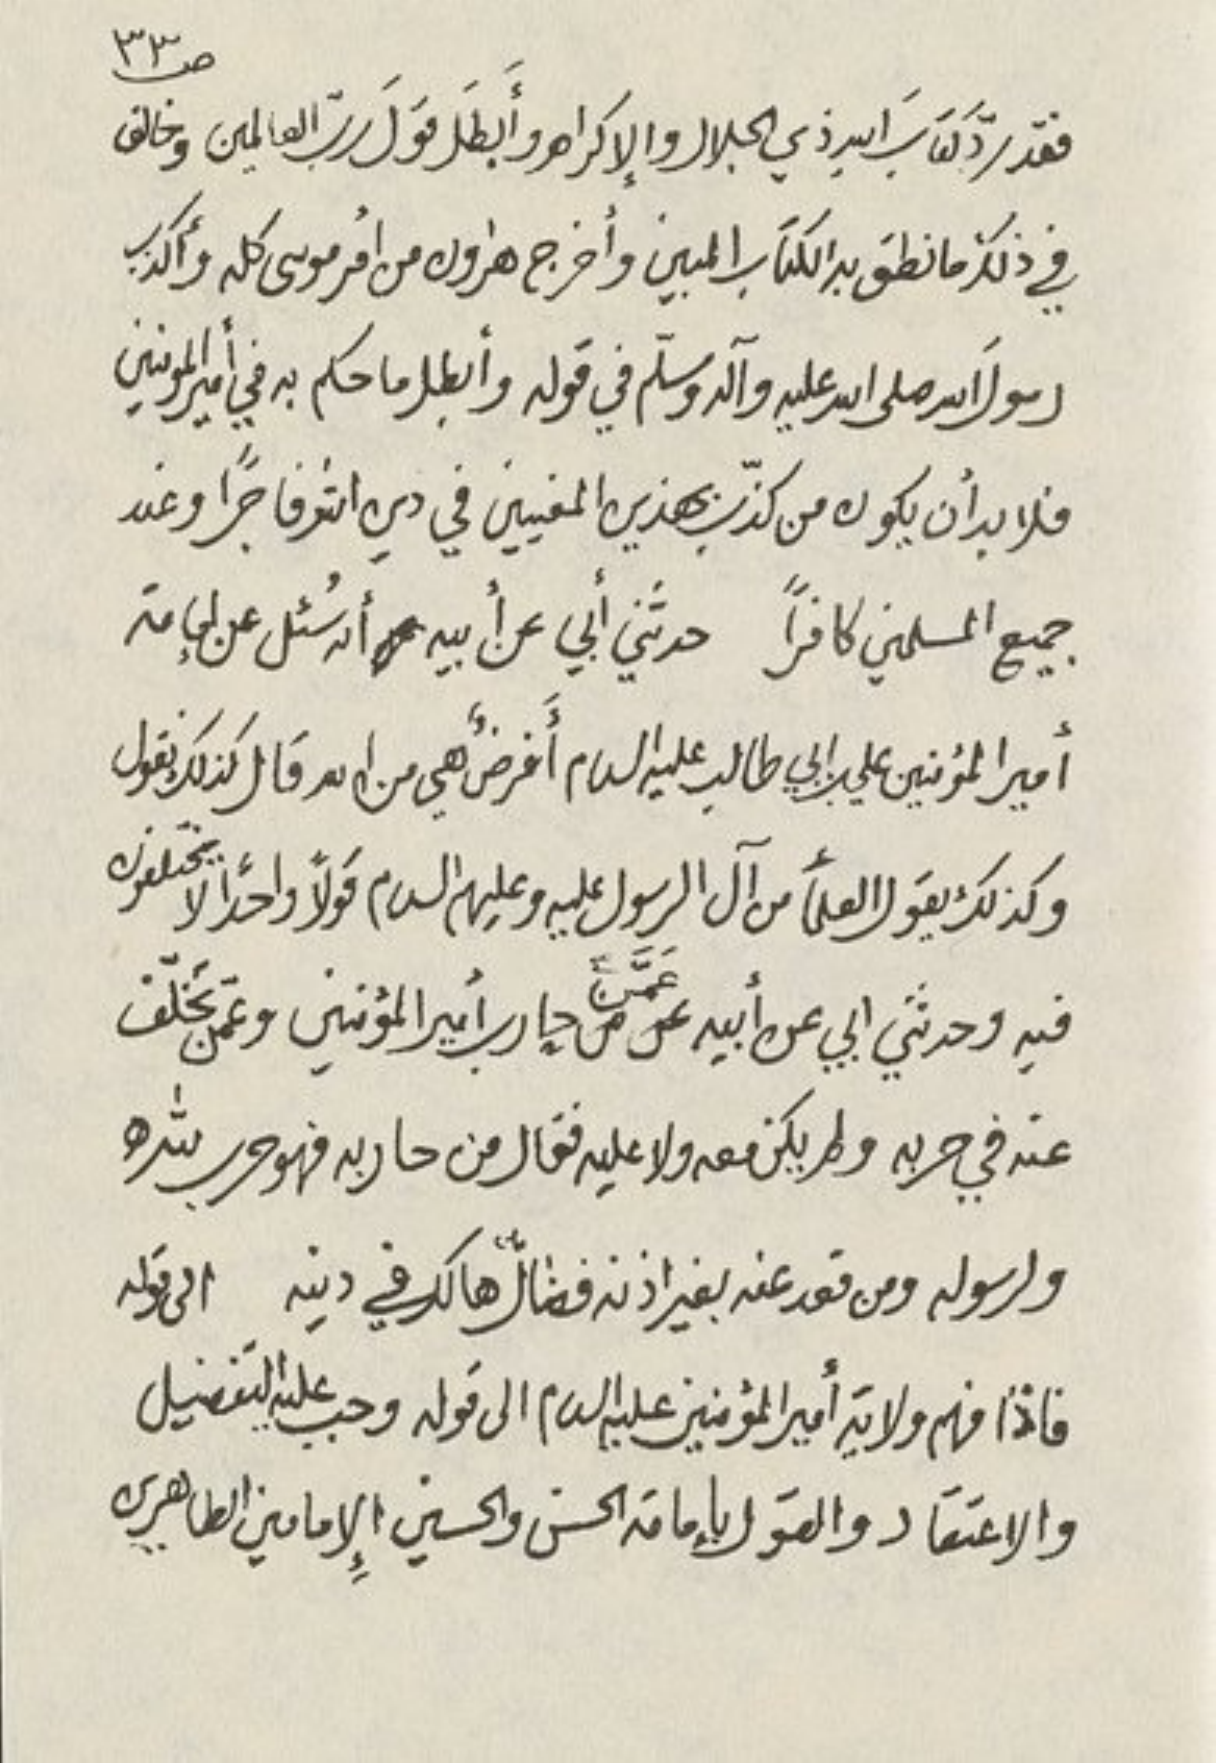 ص ٣٣
فقد ردَّ كتابَ اللهِ ذي الجلال والإكرام وأَبطَلَ قولَ ربّ العالمين وخالف
في ذلك ما نطق به الكتاب المبين وأخرج هارون من أمر موسى كله وأكذب
رسولَ الله صلى الله عليه وآله وسلّم في قوله وأبطل ما حكم به في أمير المؤمنين
فلا بد أن يكون من كذّب بهذين المعنيين في دين الله فاجرًا وعند
جميع المسلمين كافرًا حدثني أبي عن أبيه أنه سُئل عن إمامة
أمير المؤمنين علي بن أبي طالب عليه السلام أَفرضٌ هي من الله قال كذلك نقول
وكذلك يقول العلمأ من آل الرسول عليه وعليهم السلام قولًا واحدًا لا يختلفون
فيه وحدثني أبي عن أبيه عَمَّن حارب أمير المؤمنين وعمّن تخلّف
عنه في حربه ولم يكن معه ولا عليه فقال من حاربه فهو حرب لله
ولرسوله ومن قعد عنه بغير اذنه فضالٌّ هالك في دينه الى قوله
فاذا فهم ولاية أمير المؤمنين عليه السلام الى قوله وجب عليه التفضيل
والاعتقاد والقول بإمامة الحسن والحسين الإمامين الطاهرين